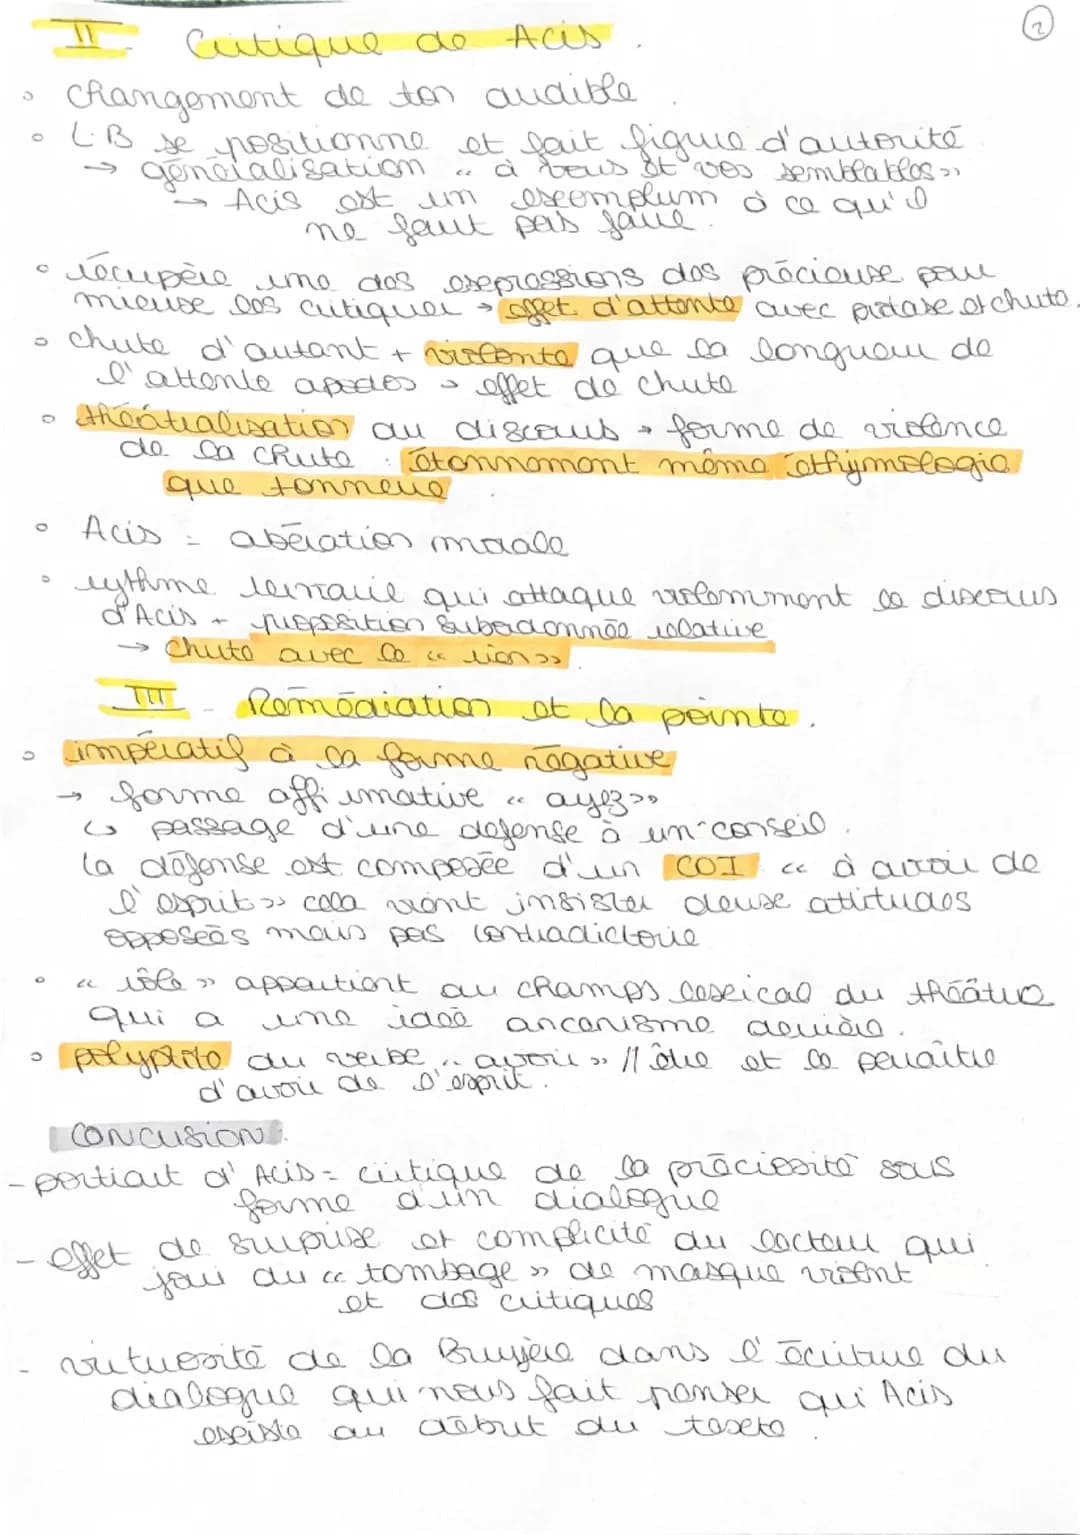 II Critique de Acis.
2
◦ changement de ton audible.
◦ L.B se positionne et fait figure d'autorité
→ généralisation « à vous et vos semblables »
→ Acis est un exemplum à ce qu'il
ne faut pas faire.
◦ récupère une des expressions des précieux pour
mieux les critiquer → effet d'attente avec protase et chute.
◦ chute d'autant + violente que la longueur de
l'attente → effet de chute
◦ théâtralisation du discours → forme de violence
de la chute : étonnement même éthymologie
que tonnerre.
◦ Acis = abération morale
◦ rythme ternaire qui attaque violemment le discours
d'Acis + proposition subordonnée relative
→ chute avec le « rien ».
III - Remédiation et la pointe.
◦ impératif à la forme négative
→ forme affirmative « ayez »
↳ passage d'une défense à un conseil.
la défense est composée d'un COI « à avoir de
l'esprit » cela vient insister deux attitudes
opposées mais pas contradictoire
◦ « rôle » appartient au champs lexical du théâtre
qui a une idée derrière.
◦ polyptote du verbe « avoir » // être et le paraître
d'avoir de l'esprit.
CONCUSION.
- portrait d'Acis = critique de la préciosité sous
forme d'un dialogue
- effet de surprise et complicité du lecteur qui
joui du « tombage » de masque violent
et des critiques
- virtuosité de la Bruyère dans l'écriture du
dialogue qui nous fait penser qui Acis
existe au début du texte.